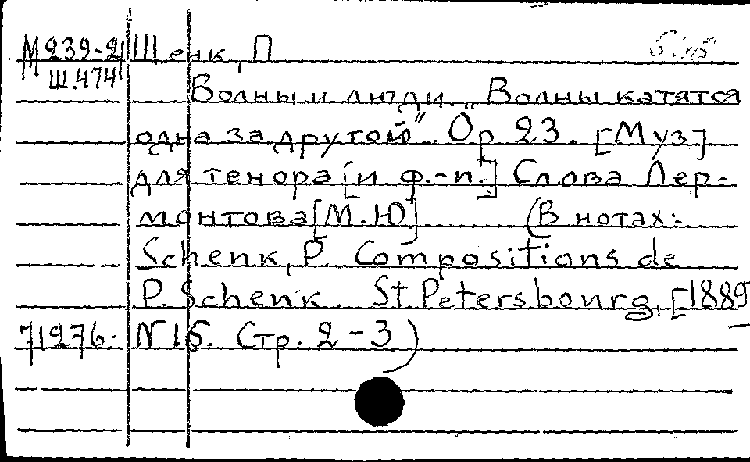 М 239-2 Шенк, П
Ш.474
Волны и люди. „Волны катятся
одна за другой". Op 23. [Муз]
для тенора [и ф.-п.] Слова Лер-
монтова [М.Ю] (В нотах:
Schenk, P. Compositions de
P. Schenk. St. Petersbourg, [1889
71276. N 15. Стр. 2-3)